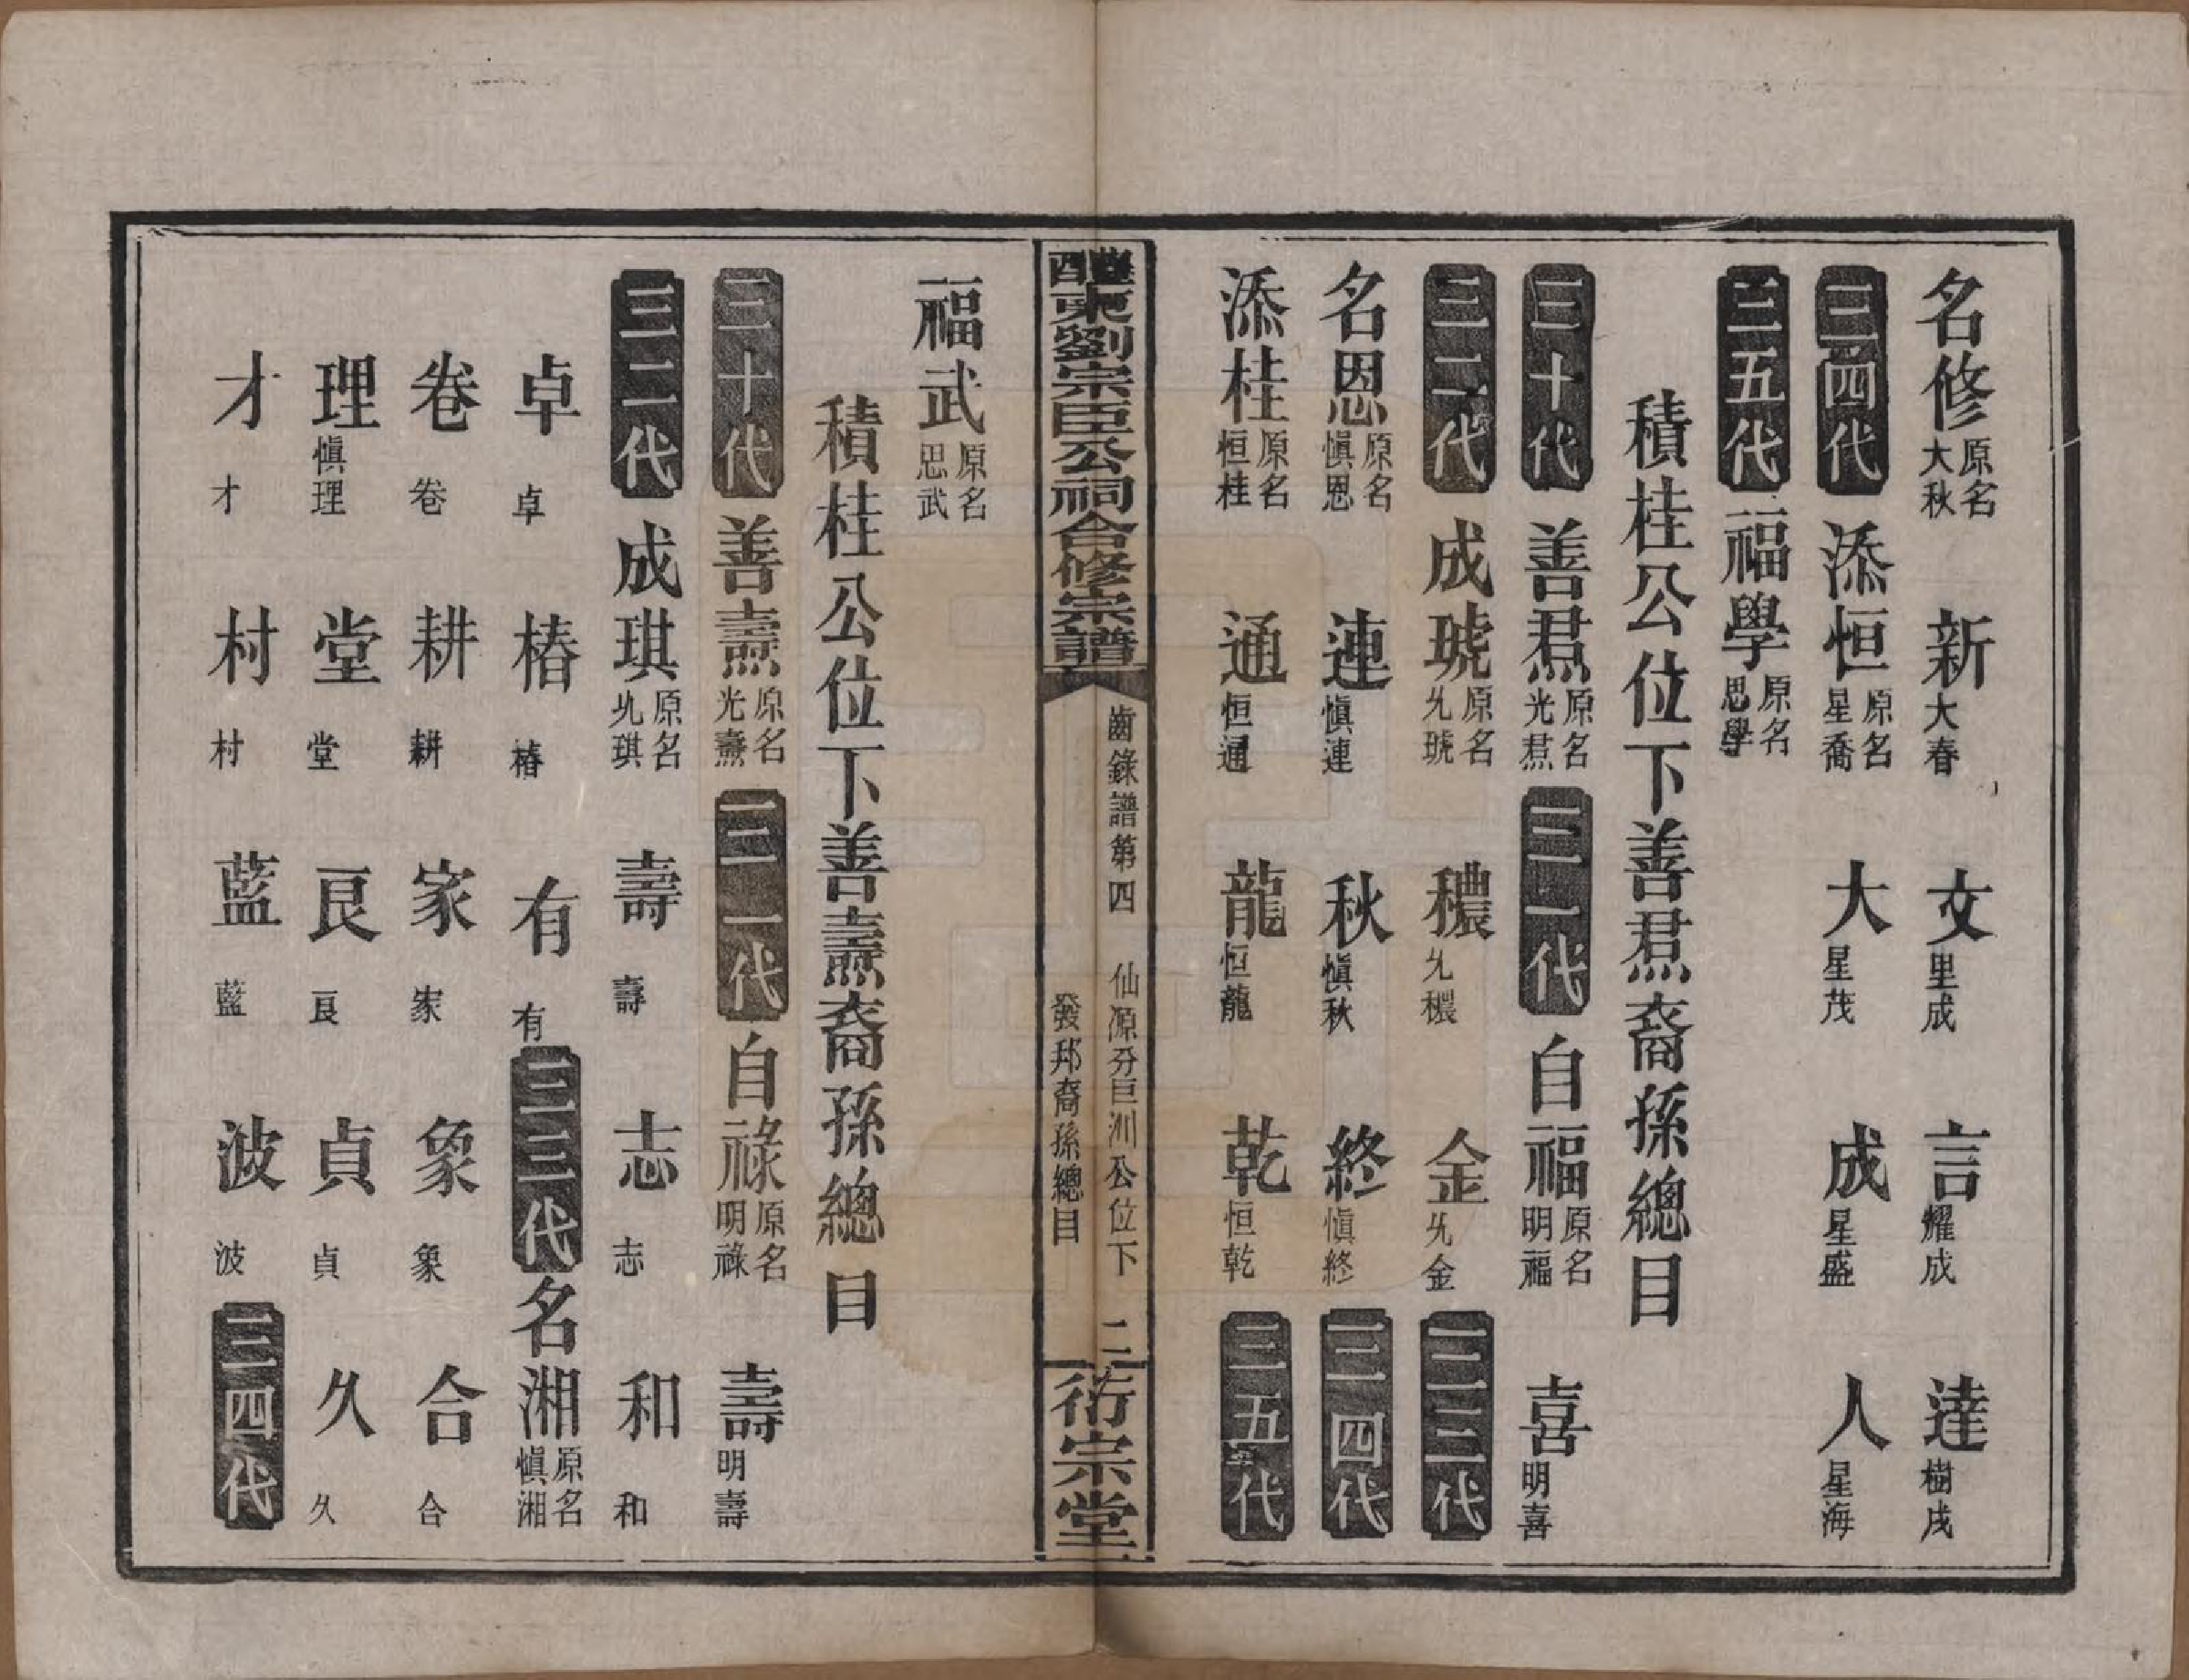 名修原名大秋 新大春 文里成 言耀成 達樹成
三四代 添恒原名星喬 大星茂 成星盛 人星海
三五代 福學原名思學
積桂公位下善焄裔孫總目
三十代 善焄原名光焄 三一代 自福原名明福 喜明喜
三二代 成琥原名允琥 穠允穠 金允金 三三代
名恩原名慎恩 連慎連 秋慎秋 終慎終 三四代
添桂原名恒桂 通恒通 龍恒龍 乾恒乾 三五代
醴東劉宗臣公祠合修宗譜
齒錄譜第四 仙源分巨洲公位下 二
發邦裔孫總目
衍宗堂
福武原名思武
積桂公位下善燾裔孫總目
三十代 善燾原名光燾 三一代 自祿原名明祿 壽明壽
三二代 成琪原名允琪 壽壽 志志 和和
卓卓 椿椿 有有 三三代 名湘原名慎湘
卷卷 耕耕 家家 象象 合合
理慎理 堂堂 良良 貞貞 久久
才才 村村 藍藍 波波 三四代